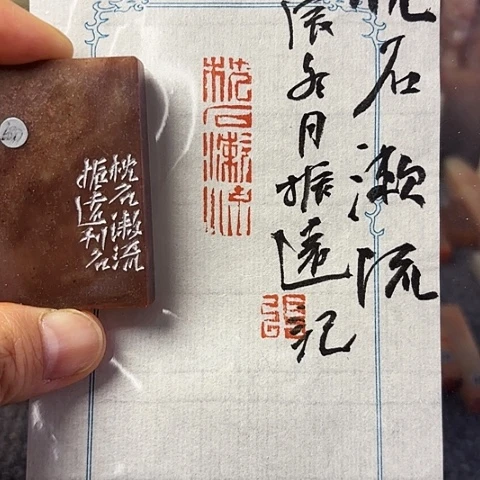 枕石漱流
辰冬月振遠記
枕石漱流
枕石漱流
振遠刊石